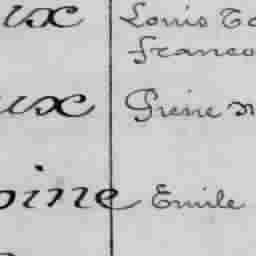 ux Louis
franco
ux Pierre
oine Emile